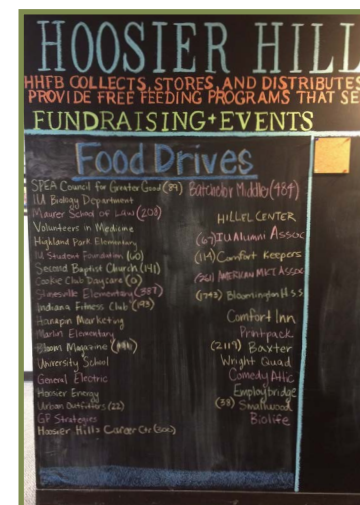 HOOSIER HILL
HHFB COLLECTS, STORES, AND DISTRIBUTES
PROVIDE FREE FEEDING PROGRAMS THAT SE
FUNDRAISING+EVENTS
Food Drives
SPEA Council for Greater Good (89)
IU Biology Department
Maurer School of Law (208)
Volunteers in Medicine
Highland Park Elementary
IU Student Foundation (60)
Second Baptist Church (141)
Cookie Club Daycare
Stinesville Elementary (387)
Indiana Fitness Club (193)
Hanapin Marketing
Marlin Elementary
Bloom Magazine
University School
General Electric
Hoosier Energy
Urban Outfitters (22)
GF Strategies
Hoosier Hills Career Ctr (500)
Batchelor Middle (484)
HILLEL CENTER
(67) IU Alumni Assoc
(114) Comfort Keepers
(261) AMERICAN MKT ASSOC
(1793) Bloomington H.S.S.
Comfort Inn
Printpack
(2117) Baxter
Wright Quad
Comedy Attic
Employbridge
(38) Smallwood
Biolife